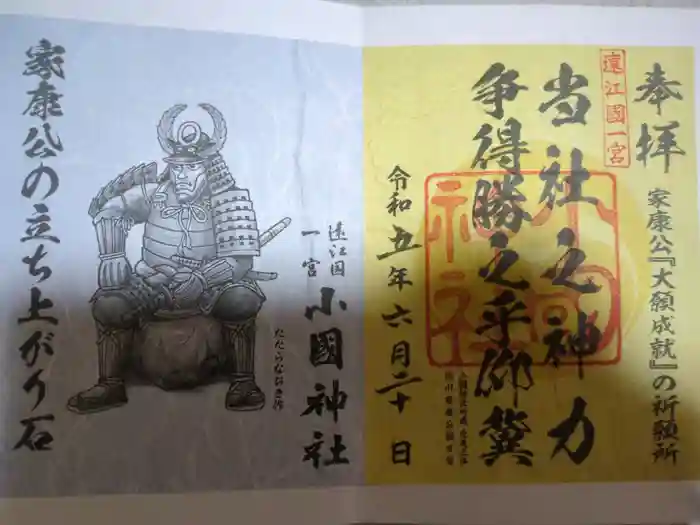 奉拝
家康公『大願成就』の祈願所
遠江國一宮
当社之神力
争得勝之乎仰冀
小國神社
令和五年六月二十日
遠江国
一宮
小國神社
家康公の立ち上がり石